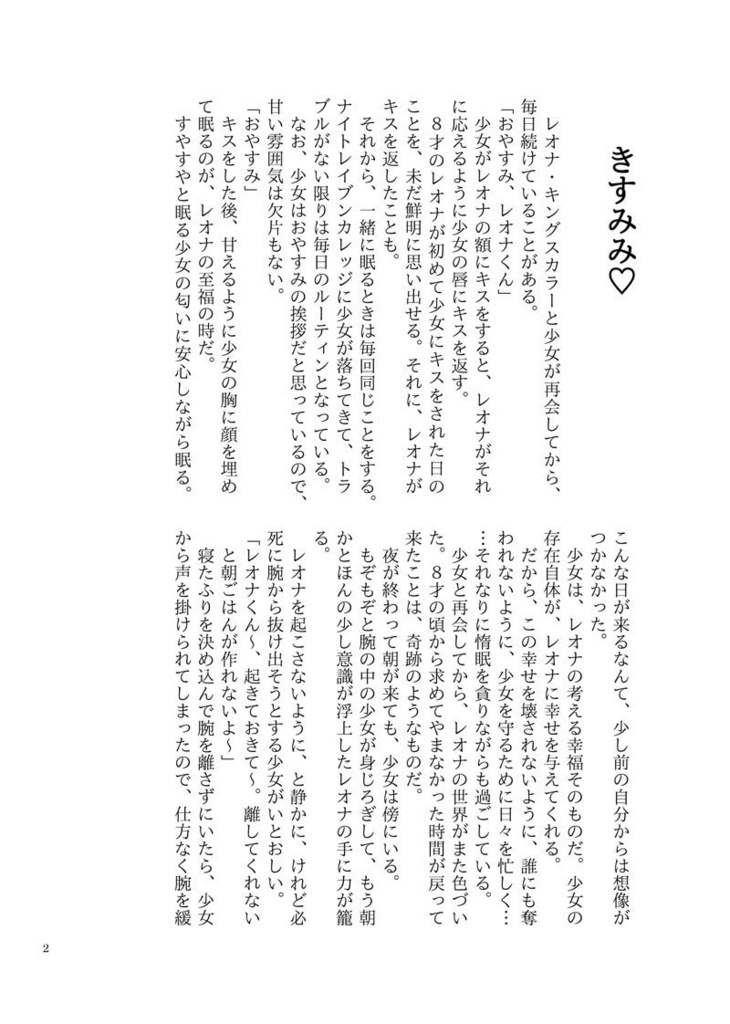 きすみみ♡
レオナ・キングスカラーと少女が再会してから、
毎日続けていることがある。
「おやすみ、レオナくん」
少女がレオナの額にキスをすると、レオナがそれ
に応えるように少女の唇にキスを返す。
８才のレオナが初めて少女にキスをされた日の
ことを、未だ鮮明に思い出せる。それに、レオナが
キスを返したことも。
それから、一緒に眠るときは毎回同じことをする。
ナイトレイブンカレッジに少女が落ちてきて、トラ
ブルがない限りは毎日のルーティンとなっている。
なお、少女はおやすみの挨拶だと思っているので、
甘い雰囲気は欠片もない。
「おやすみ」
キスをした後、甘えるように少女の胸に顔を埋め
て眠るのが、レオナの至福の時だ。
すやすやと眠る少女の匂いに安心しながら眠る。
こんな日が来るなんて、少し前の自分からは想像が
つかなかった。
少女は、レオナの考える幸福そのものだ。少女の
存在自体が、レオナに幸せを与えてくれる。
だから、この幸せを壊されないように、誰にも奪
われないように、少女を守るために日々を忙しく…
…それなりに惰眠を貪りながらも過ごしている。
少女と再会してから、レオナの世界がまた色づい
た。８才の頃から求めてやまなかった時間が戻って
来たことは、奇跡のようなものだ。
夜が終わって朝が来ても、少女は傍にいる。
もぞもぞと腕の中の少女が身じろぎして、もう朝
かとほんの少し意識が浮上したレオナの手に力が籠
る。
レオナを起こさないように、と静かに、けれど必
死に腕から抜け出そうとする少女がいとおしい。
「レオナくん～、起きておきて～。離してくれない
と朝ごはんが作れないよ～」
寝たふりを決め込んで腕を離さずにいたら、少女
から声を掛けられてしまったので、仕方なく腕を緩
2